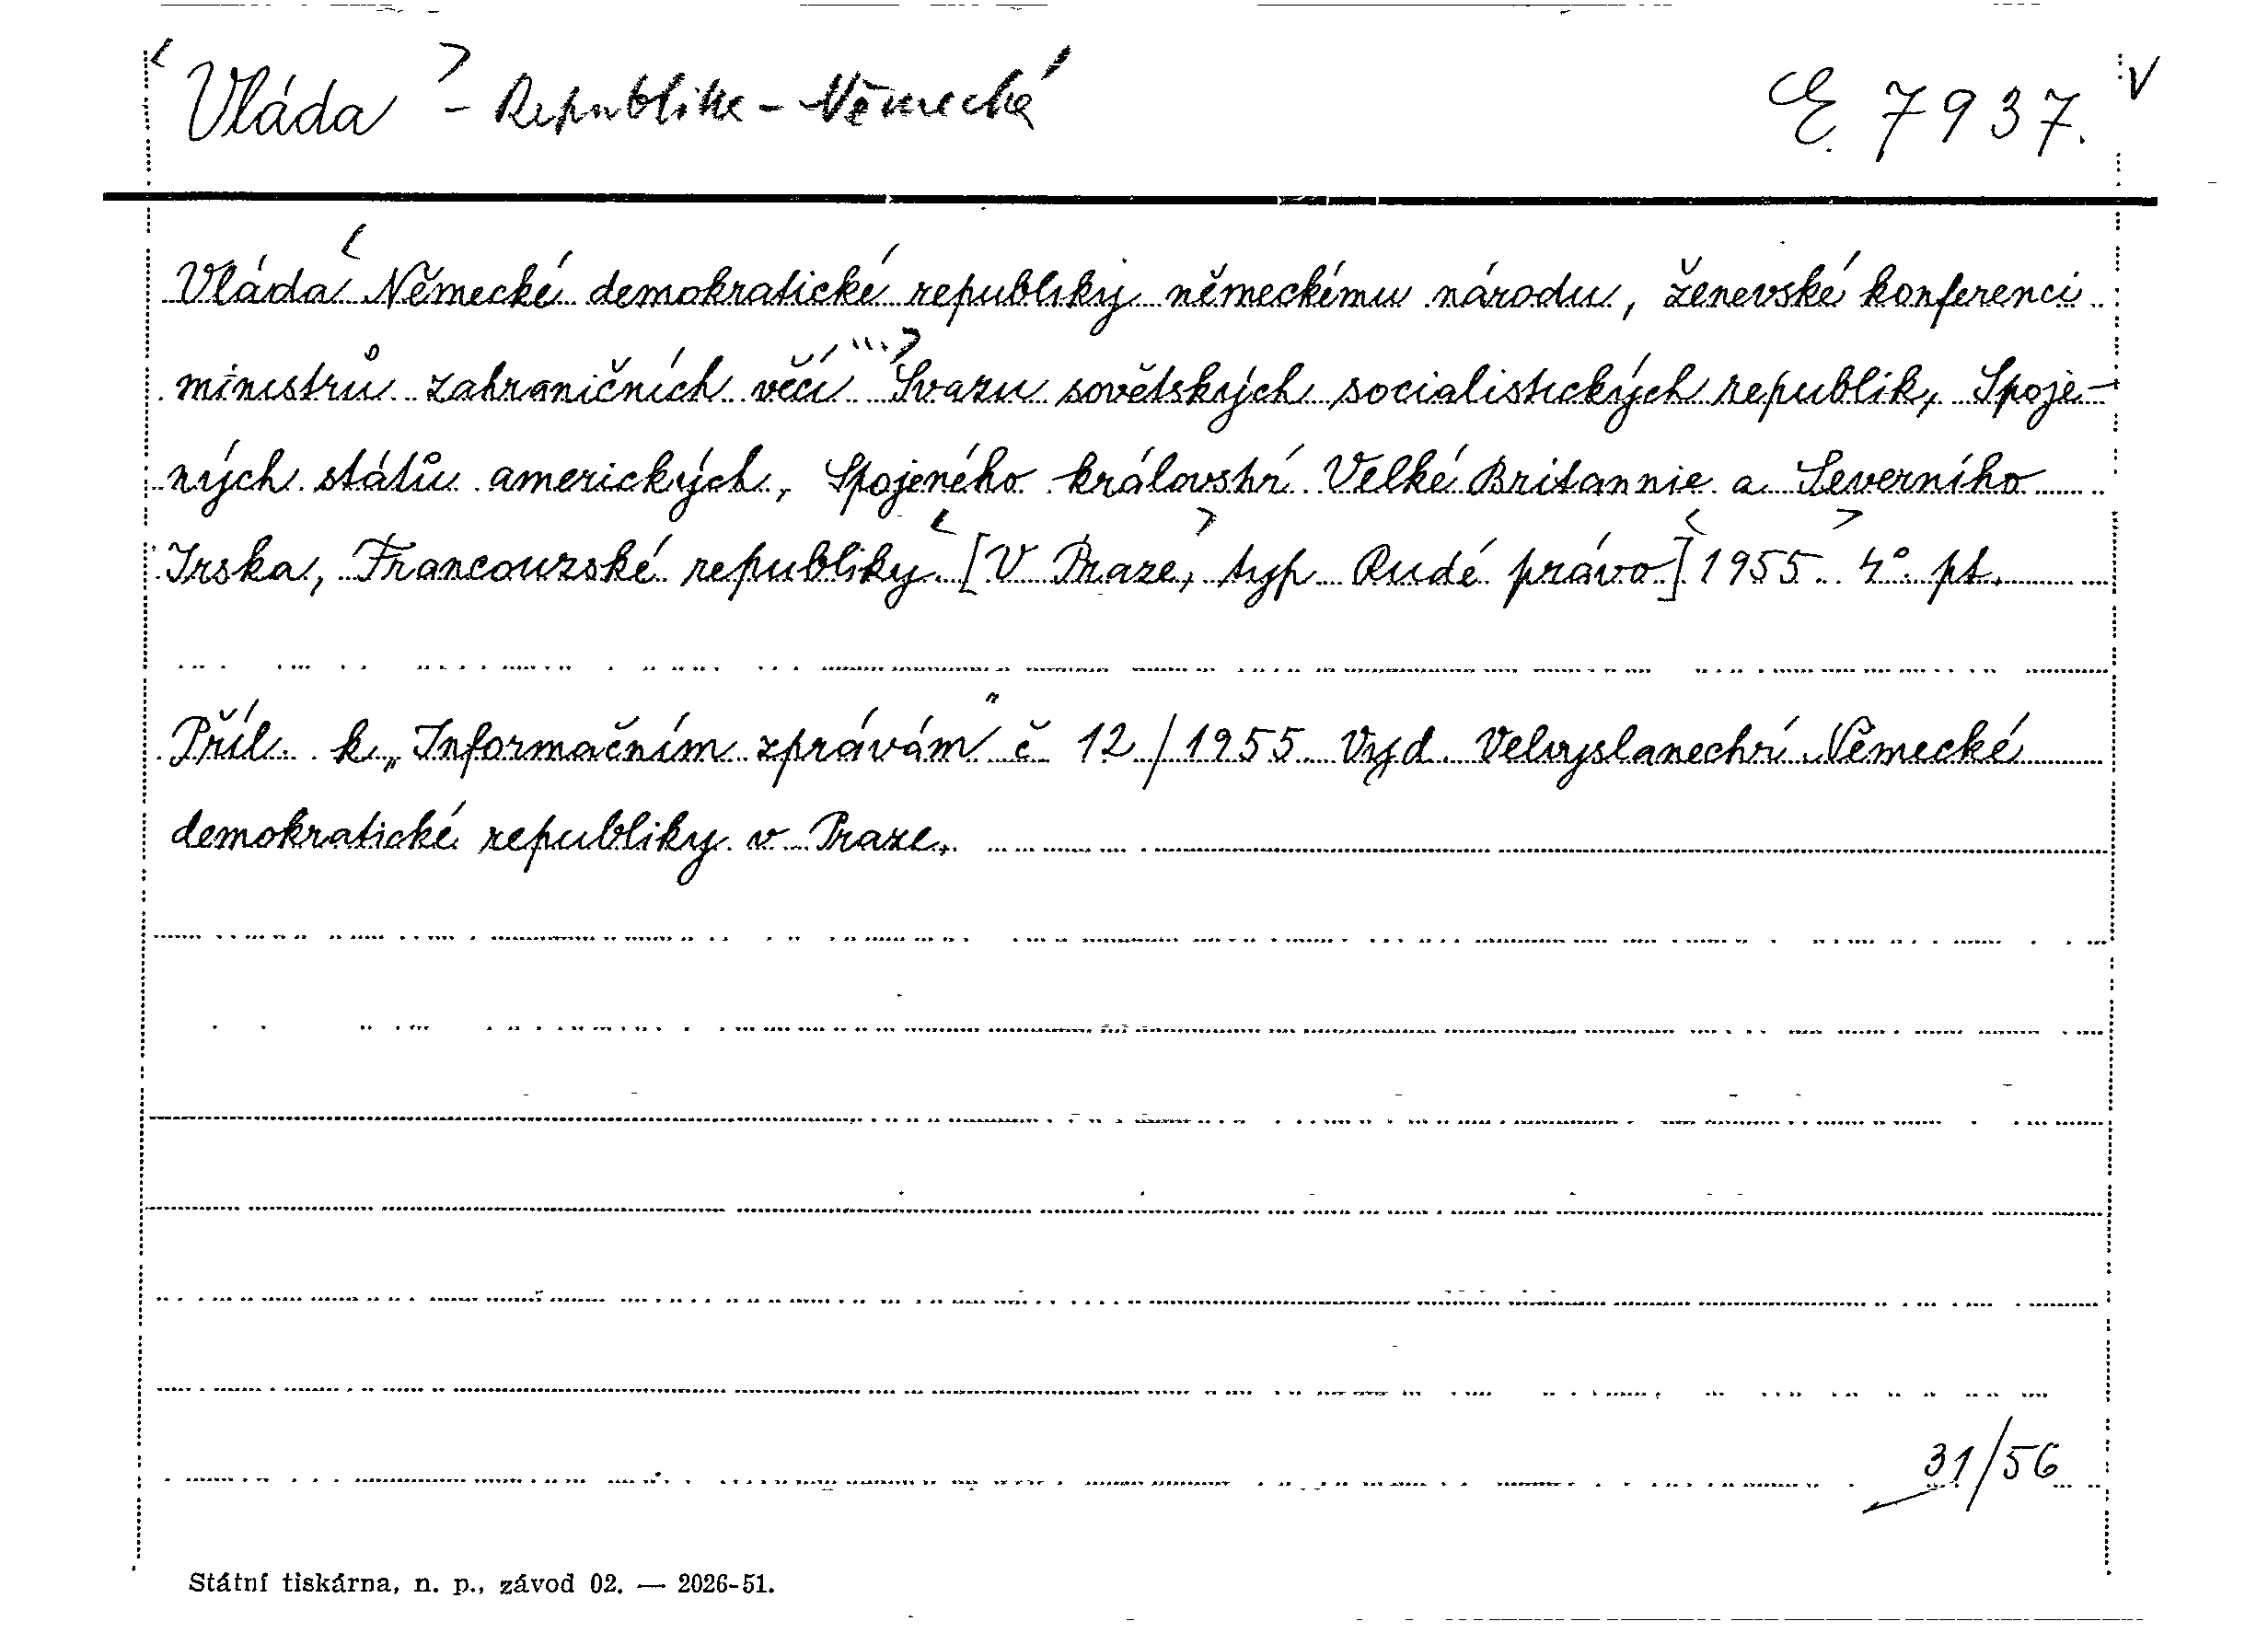 Vláda - Republika - Německá E 7937. V
Vláda Německé demokratické republiky německému národu, ženevské konferenci
ministrů zahraničních věcí ... Svazu sovětských socialistických republik, Spoje-
ných států amerických, Spojeného království Velké Britannie a Severního
Irska, Francouzské republiky. [V Praze, typ. Rudé právo] 1955. 4° pt.
Příl. k „Informačním zprávám" č. 12/1955. Vyd. Velvyslanectví Německé
demokratické republiky v Praze.
31/56
Státní tiskárna, n. p., závod 02. — 2026-51.